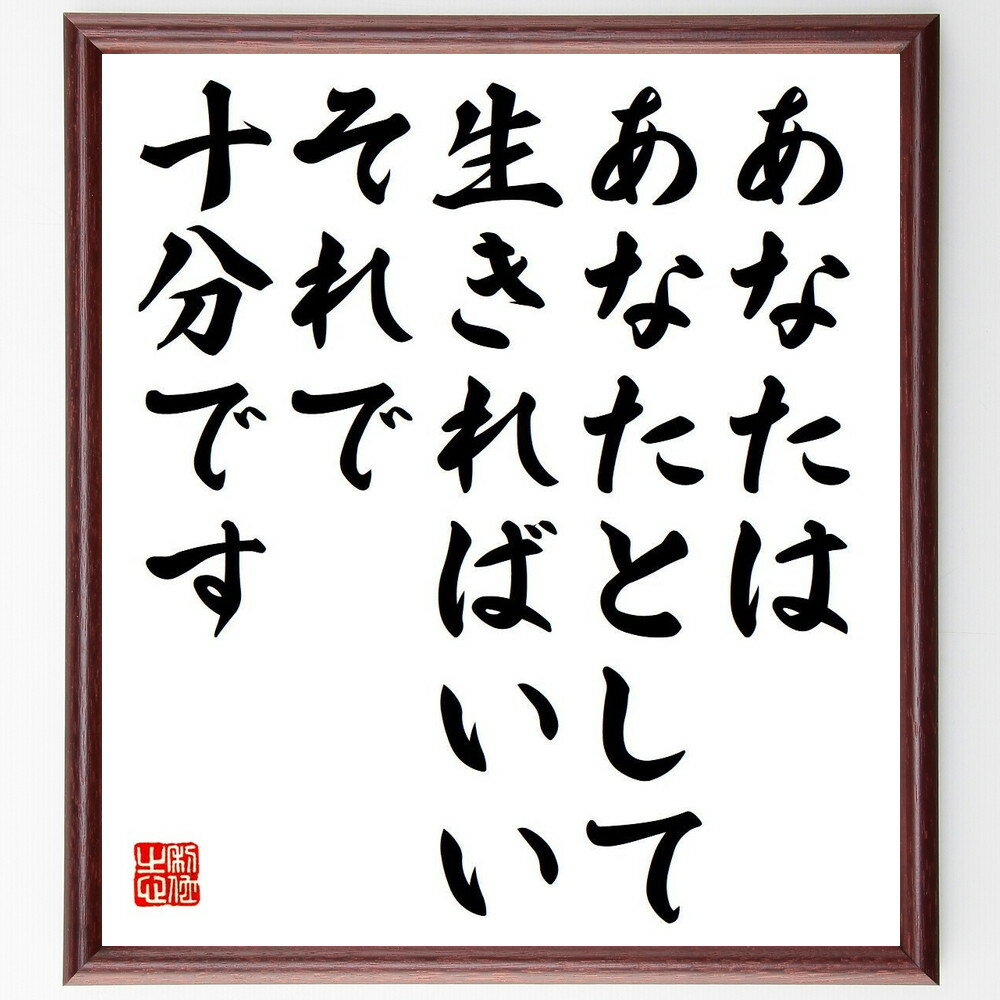 あなたは
あなたとして
生きればいい
それで
十分です